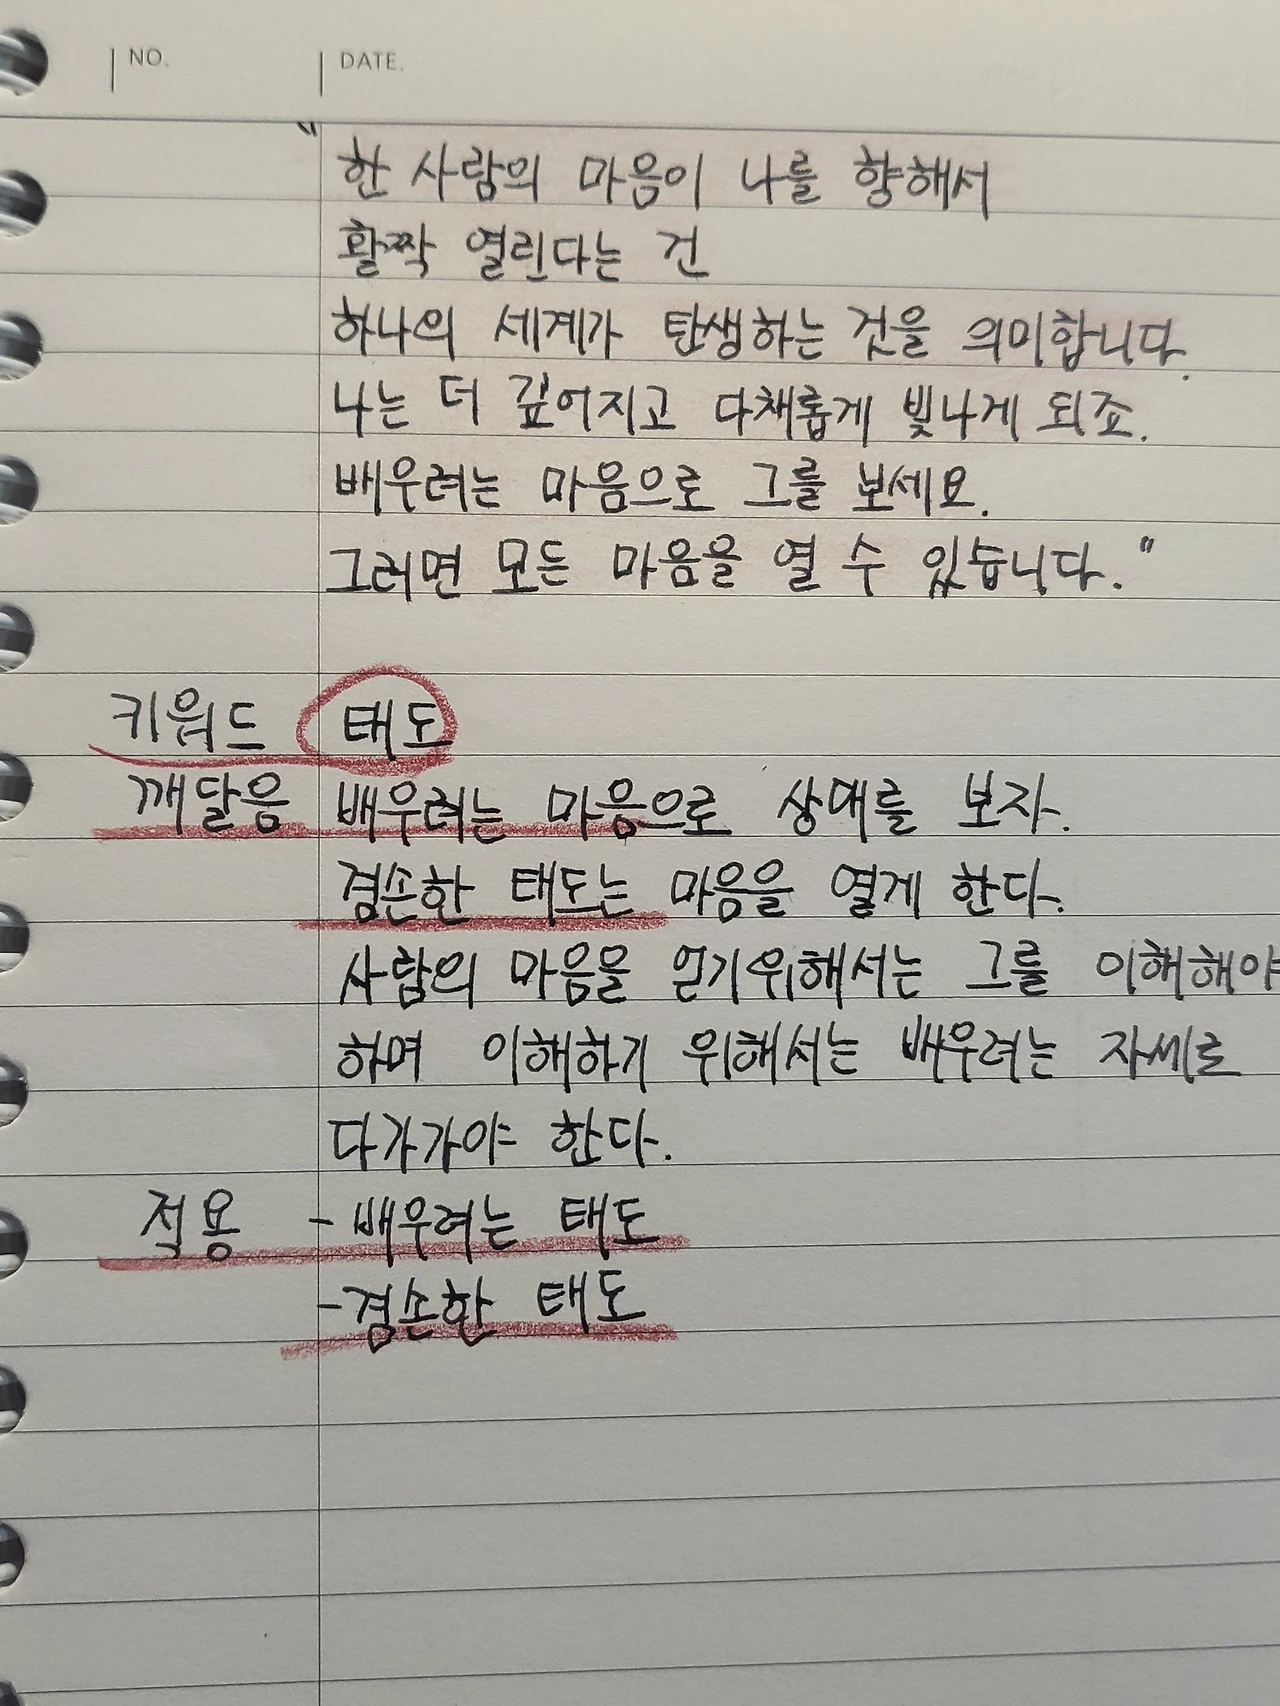 NO. DATE.
"한 사람의 마음이 나를 향해서
활짝 열린다는 건
하나의 세계가 탄생하는 것을 의미합니다.
나는 더 깊어지고 다채롭게 빛나게 되죠.
배우려는 마음으로 그를 보세요.
그러면 모든 마음을 열 수 있습니다."
키워드 태도
깨달음 배우려는 마음으로 상대를 보자.
겸손한 태도는 마음을 열게 한다.
사람의 마음을 얻기위해서는 그를 이해해야
하며 이해하기 위해서는 배우려는 자세로
다가가야 한다.
적용 - 배우려는 태도
- 겸손한 태도